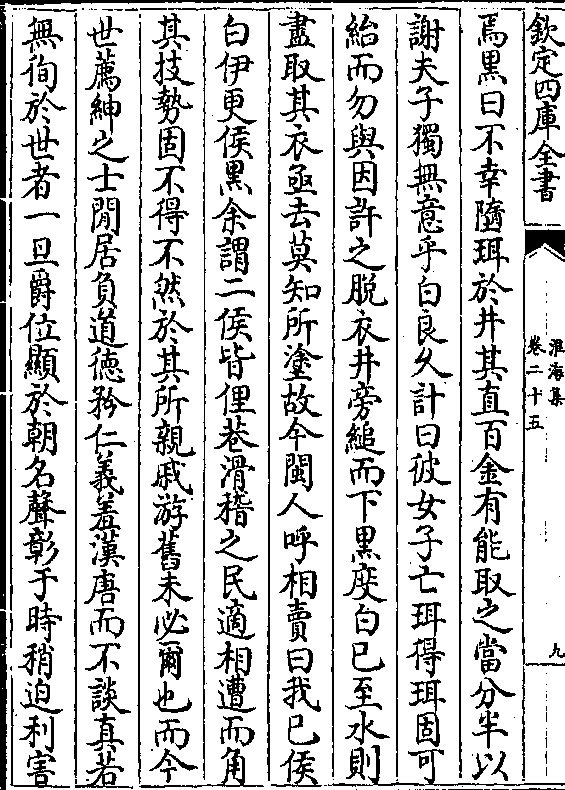 欽定四庫全書
淮海集
卷二十五
九
焉黒曰不幸墮珥於井其直百金有能取之當分半以
謝夫子獨無意乎白良久計曰彼女子亡珥得珥固可
紿而勿與因許之脱衣井旁縋而下黒度白已至水則
盡取其衣亟去莫知所塗故今閩人呼相賣曰我已侯
白伊更侯黒余謂二侯皆俚巷滑稽之民適相遭而角
其技勢固不得不然於其所親戚游舊未必爾也而今
世薦紳之士閒居負道德矜仁義羞漢唐而不談真若
無徇於世者一旦爵位顯於朝名聲彰于時稍迫利害